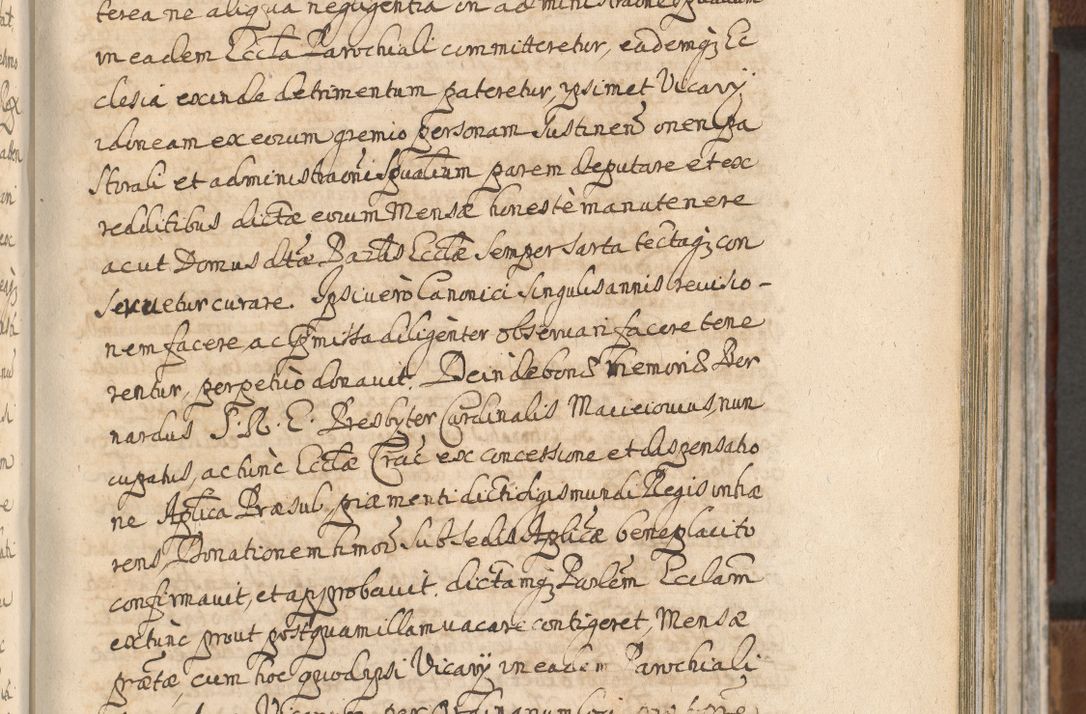 terea ne aliqua negligentia in administraõne spualium
in eadem Eccła Parochiali committeretur, eademq; Ec
clesia exinde detrimentum pateretur, ipsimet Vicarij
idoneam ex eorum gremio personam sustinen̄ oneri pa
storali et administraõni spualium parem deputare et ex
redditibus dictæ eorum Mensæ honestè manutenere
ac ut Domus dtæ Parłis Ecclæ semper sarta tectaq; con
seruetur curare. Ipsi uerò Canonici singulis annis reuisio-
nem facere, ac p̃missa diligenter obseruari facere tene
rentur, perpetuò donauit. Deinde bonæ memoriæ Ber
nardus S. R. E. Presbyter Cardinalis Macieiouius nun
cupatus, ac tunc Ecclæ Crac̃ ex concessione et dispensatio
ne Aplica Præsul, piæ menti dicti Sigismundi Regis inhæ
rens, Donationem hmoi sub Sedis Aplicæ beneplacito
confirmauit, et approbauit, dictamq; Parlem Ecclam
ex tunc prout postquam illam uacare contigeret, Mensæ
prætæ cum hoc quod ipsi Vicarij in eadem Parochiali